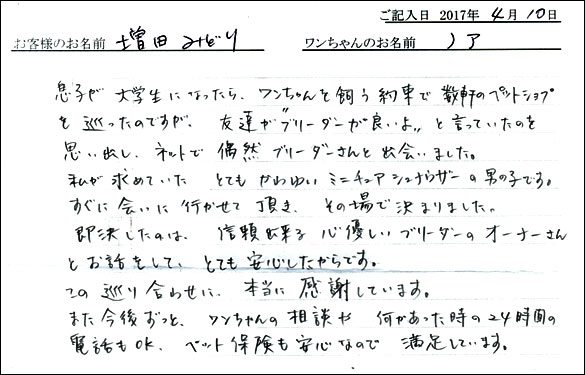 ご記入日 2017年 4月 10日
お客様のお名前 増田 みどり ワンちゃんのお名前 ノア
息子が 大学生になったら、ワンちゃんを飼う約束で 数軒のペットショプ
を巡ったのですが、友達が"ブリーダーが良いよ"と言っていたのを
思い出し、ネットで 偶然 ブリーダーさんと出会いました。
私が求めていた とてもかわゆい ミニチュアシュナウザーの男の子です。
すぐに会いに 行かせて頂き、その場で決まりました。
即決したのは、信頼出来る 心優しいブリーダーのオーナーさん
とお話をして、とても安心したからです。
この巡り合わせに、本当に 感謝しています。
また今後ずっと、ワンちゃんの相談や 何かあった時の24時間の
電話もOK、ペット保険も安心なので 満足しています。